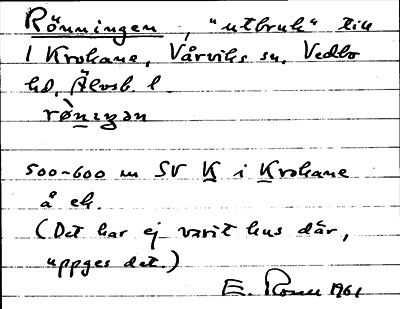 Rönningen, "utbruk" till
1 Krokane, Vårviks sn. Vedbo
hd. Älvsb. l.
rø̀nıŋən
500-600 m SV K i Krokane
å ek.
(Det har ej varit hus där,
uppges det.)
E. 1961